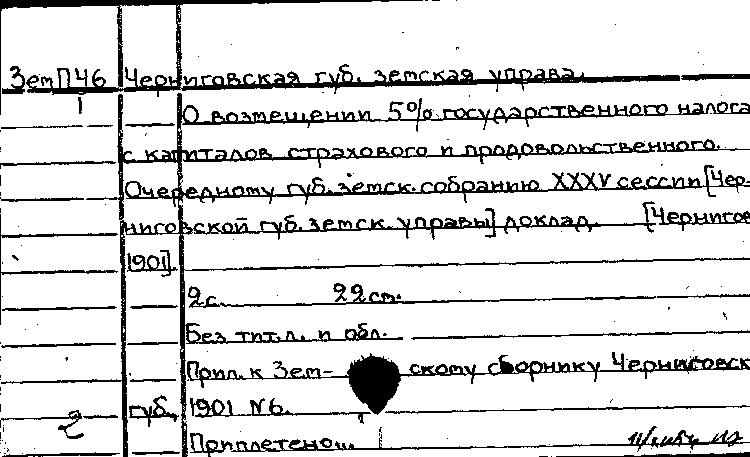 ЗемП46 Черниговская губ. земская управа.
1 О возмещении 5% государственного налога
с капиталов страхового и продовольственного.
Очередному губ. земск. собранию XXXV сессии [Чер-
ниговской губ. земск. управы] доклад. [Чернигов
1901].
2с. 22 см.
Без тит. л. и обл.
Прил. к Зем- скому сборнику Черниговск
губ., 1901 №6.
2 Приплетено...